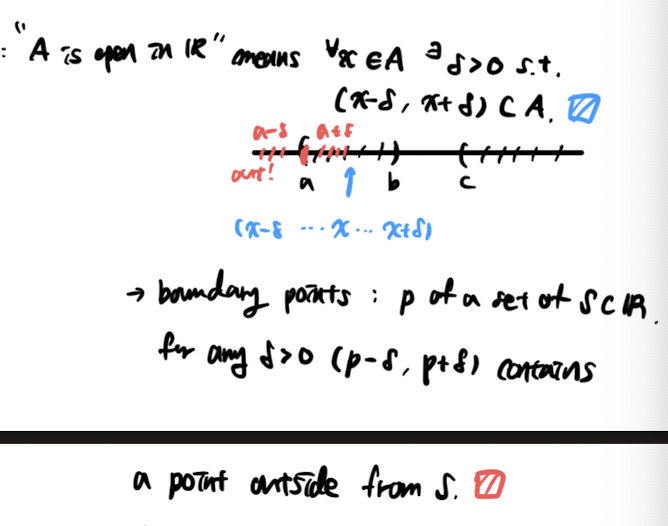 : "A is open in ℝ" means ∀x ∈ A ∃δ>0 s.t.
(x-δ, x+δ) ⊂ A.
a-δ a+δ
out!
a b c
(x-δ ... x ... x+δ)
→ boundary points : p of a set of S⊂ℝ.
for any δ>0 (p-δ, p+δ) contains
a point outside from S.